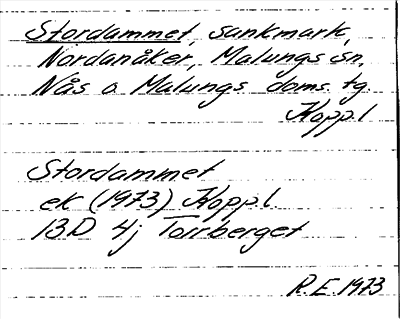 Stordammet, sankmark,
Nordanåker, Malungs sn,
Nås o Malungs doms. tg.
Koppl
Stordammet
ek (1973) Koppl.
13D 4j Torrberget
R.E. 1973